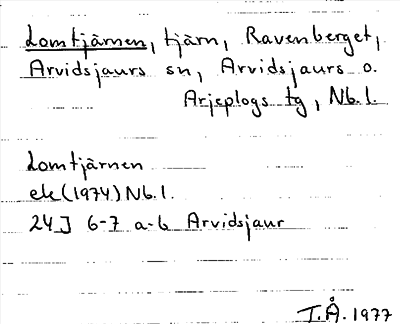 Lomtjärnen, tjärn, Ravenberget,
Arvidsjaurs sn, Arvidsjaurs o.
Arjeplogs tg, Nb.l.
Lomtjärnen
ek(1974)Nb.l.
24J 6-7 a-b Arvidsjaur
T.Å. 1977